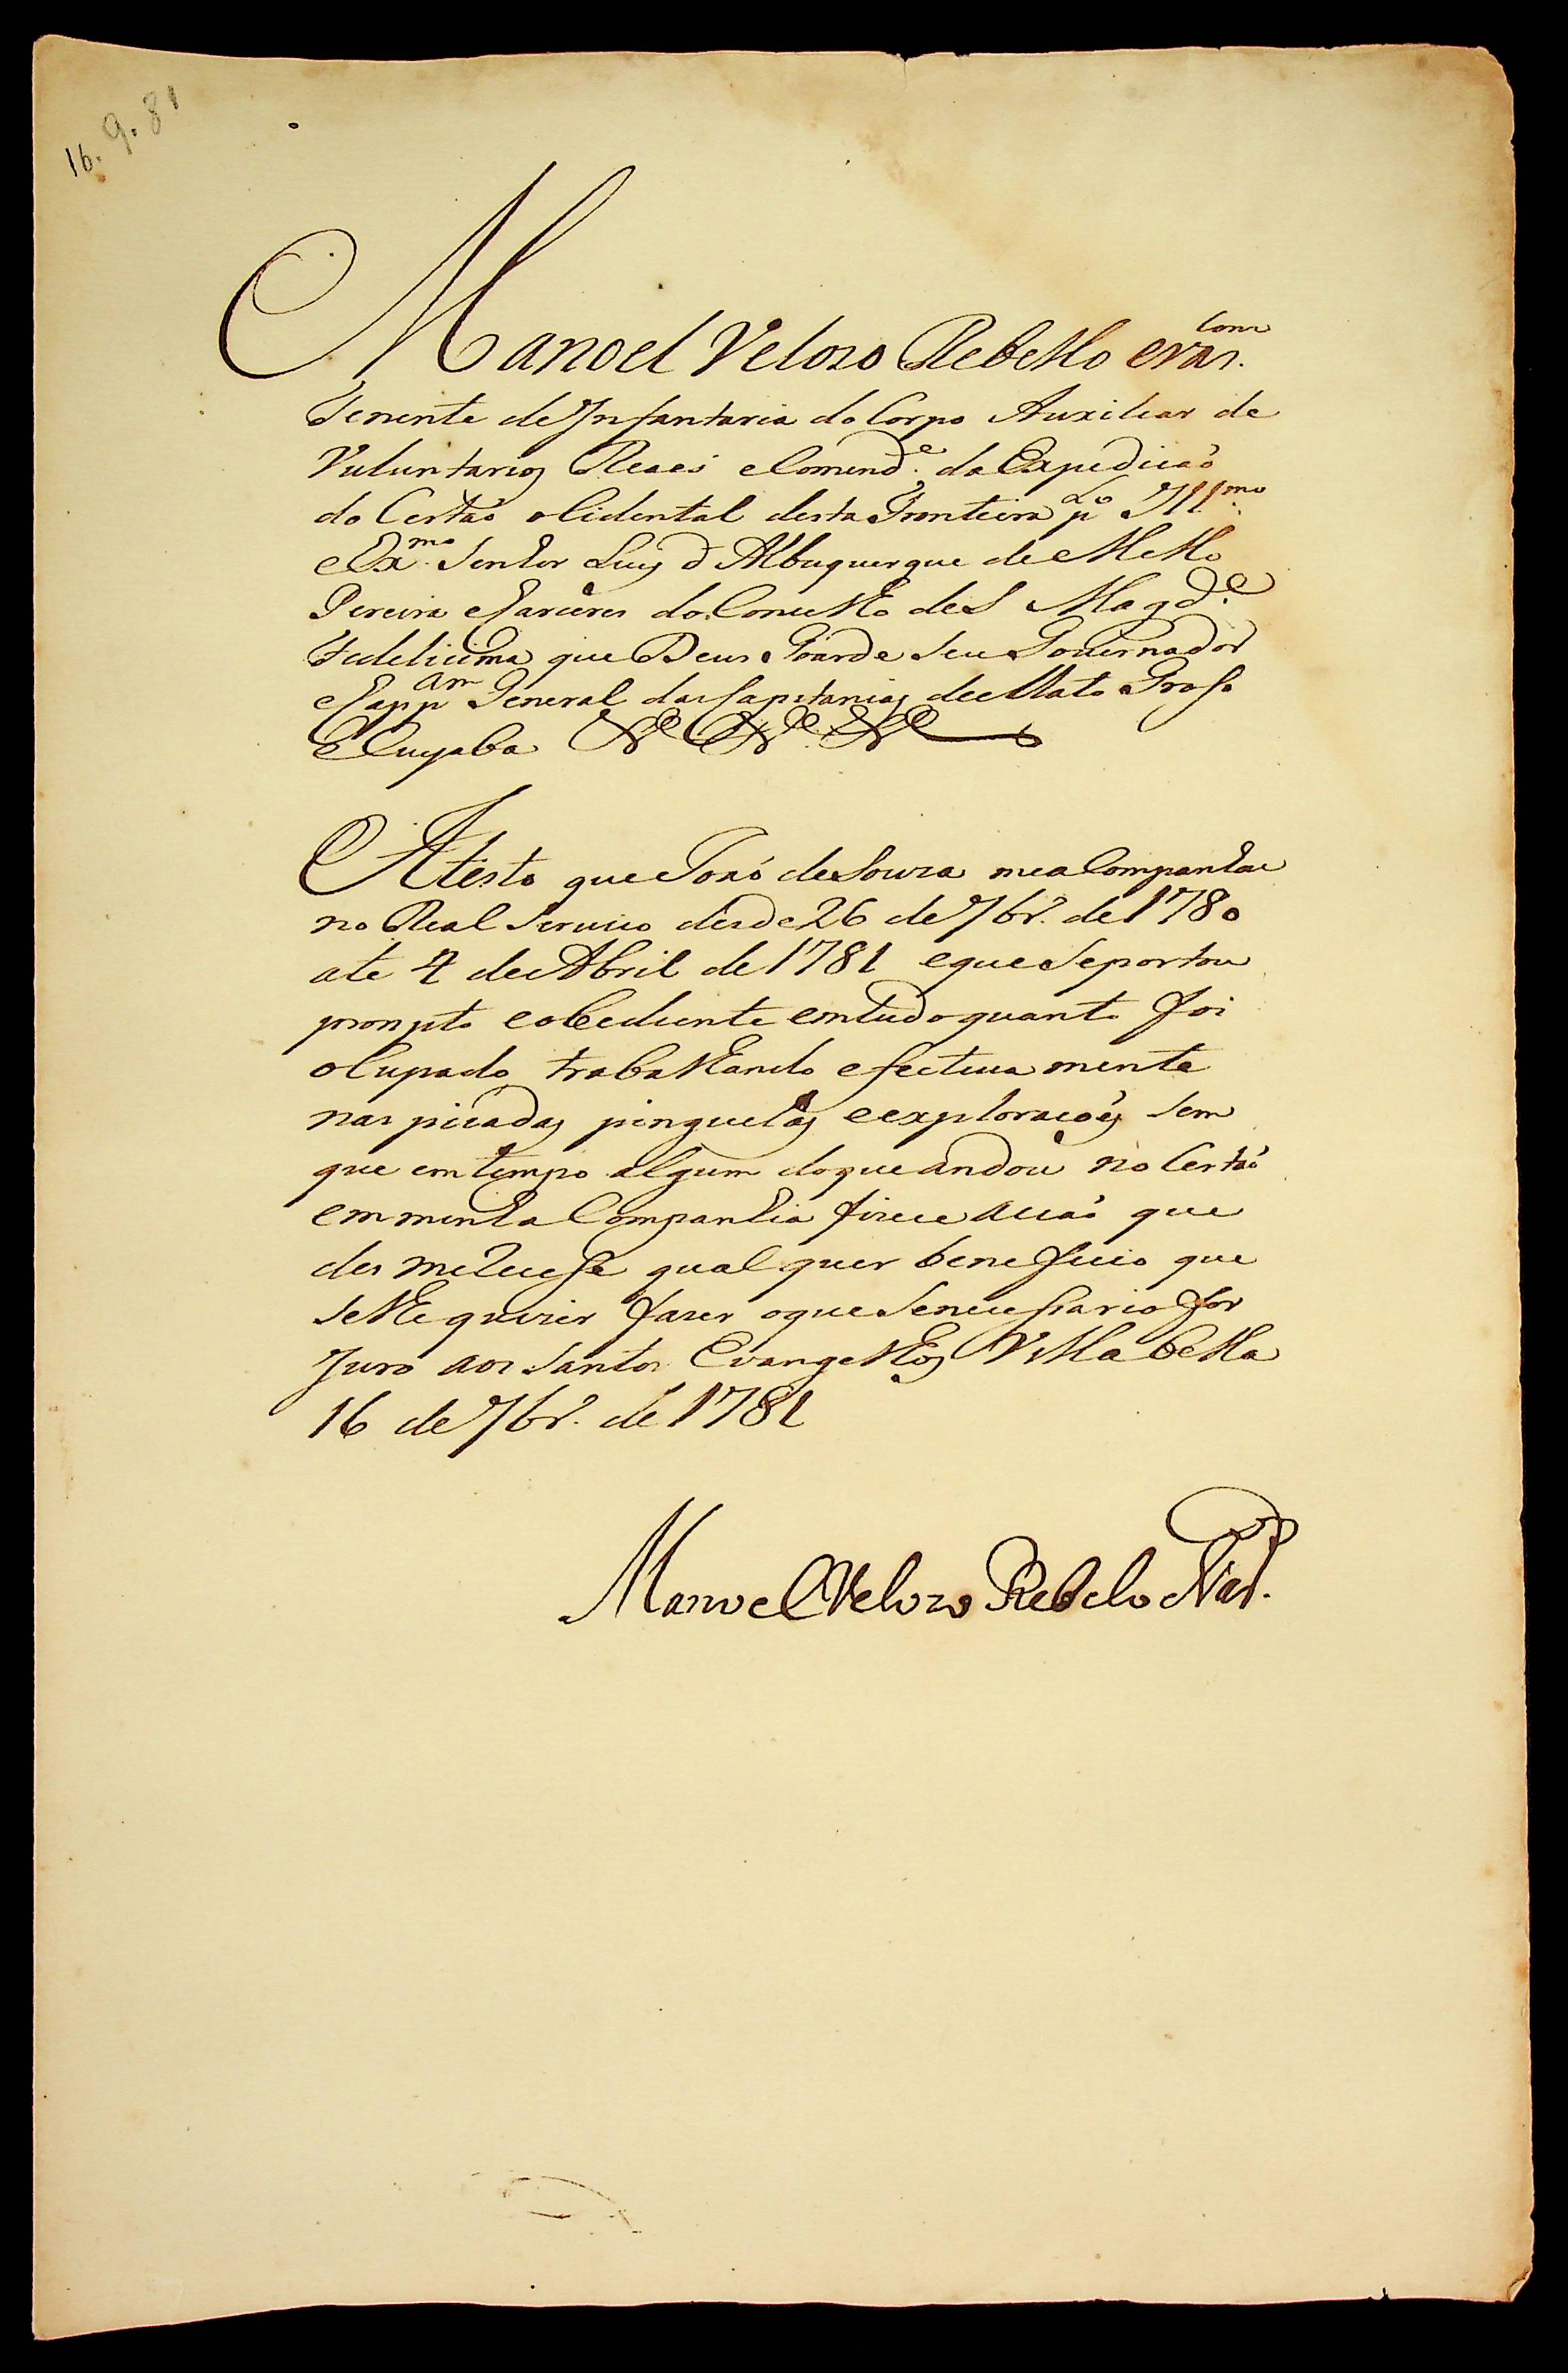 16.9.81
Manoel Velozo Rebello e Vas.com
Tenente de Infantaria do Corpo Auxiliar de
Vuluntarios Reaes e Comend.e da Expedicaõ
do Certaõ oCidental desta Fronteira p.Lo Ill.mo
e Ex.mo Senhor Luis d Albuquerque de Mello
Pereira e Caceres do Concelho de S Magd.e
Fidelicima que Deus Goarde Seu Governador
e Capp.am General das Capitanias de Mato Groso
e Cuyaba
Atesto que Joaõ de Souza me aCompanhou
no Real Servico desde 26 de 7br.o de 1780
ate 4 de Abril de 1781 e que Se portou
prompto e obediente em tudo quanto foi
oCupado trabalhando efectiva mente
nas picadas pinguelas e exploracoẽs Sem
que em tempo algum do que andou no Certaõ
em minha Companhia fizece acaõ que
des merecese qual quer beneficio que
Se lhe quizer fazer o que Se necesario for
Juro aos Santos Evangelhos Villa bella
16 de 7br.o de 1781
Manoel Velozo Rebelo e Vas.